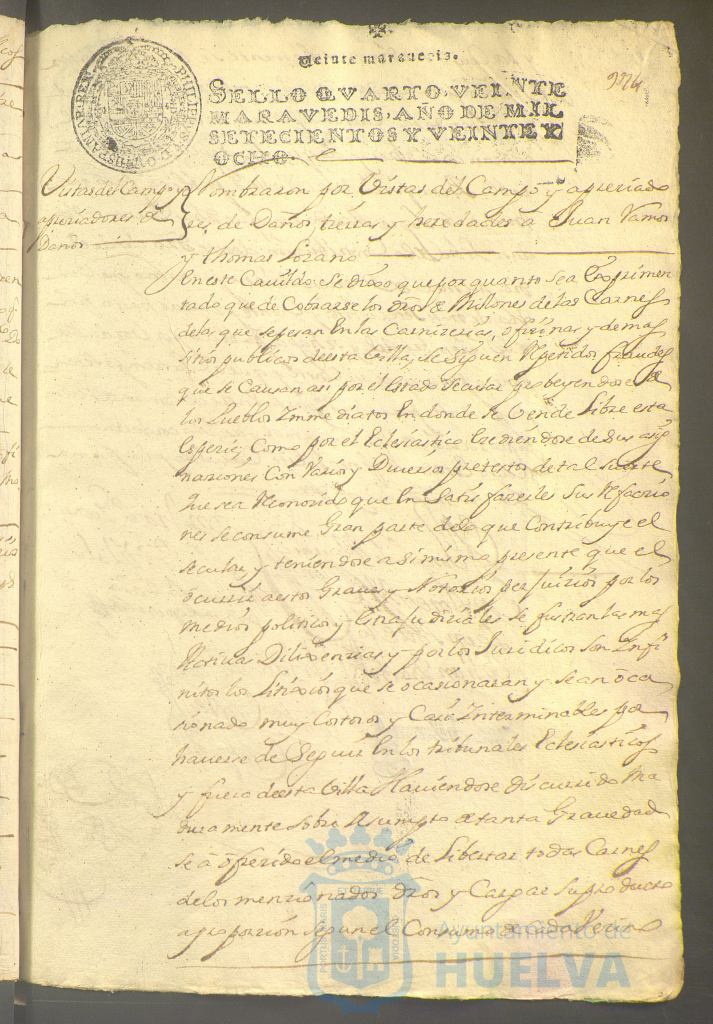 Veinte maravedis.
SELLO QVARTO, VEINTE
MARAVEDIS, AÑO DE MIL
SETECIENTOS Y VEINTE Y
OCHO.
PHILIPVS V D G HISPANIAR REX
Vistas del Campo y
apreciadores de
Daños
Nombraron por Vistas del Campo y apreciado
res de Daños, tierras y heredades à Juan Ramos
y thomas Lozano
En este Cavildo se dixo que por quanto se a Experimen
tado que de Cobrarse los dros de Millones de las Carnes
delas que se pesan En las Carnizerias, oficinas y demas
sitios publicos de esta Villa, se siguen Repetidos fraudes
que se Causan asi por el estado secular probeyendose de
los Pueblos Immediatos En donde se Vende Libre esta
Especie, Como por el Eclesiastico Exediendose de sus asig
naziones Con Varios y Diversos pretestos de tal suerte
que se a Reconozido que En Satisfazerles sus Refaczio
nes se consume Gran parte de lo que Contribuye el
secular, y teniendose asimismo presente que el
ocurrir a estos Graves y Notorios perjuizios por los
medios politicos y Extrajudiciales se frustran las mas
Activas Dilixenzias y por los Juridicos son Infi
nitos los Litixios que se ocasionaran y se an oca
sionado muy Costosos y Casi Interminables por
haverse de Seguir En los tribunales Eclesiasticos
y fuera de esta Villa Haviendose discurrido Ma
duramente sobre Asumpto de tanta Gravedad
se à ofrezido el medio de Libertar todas Carnes
de los menzionados dros y Cargar su producto
a proporzion segun el Consumo de cada Vezino
Ayuntamiento de
HUELVA